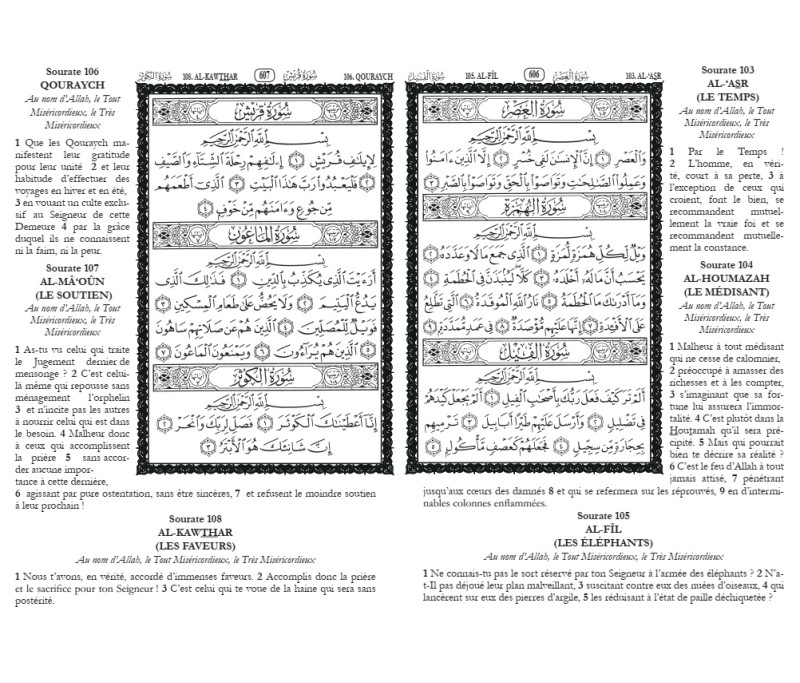 105. AL-FÎL
سُورَةُ الفِيل
606
سُورَةُ العَصْر
103. AL-‘ASR
Sourate 103
AL-‘ASR
(LE TEMPS)
Au nom d’Allah, le Tout
Miséricordieux, le Très
Miséricordieux
1 Par le Temps !
2 L’homme, en véri-
té, court à sa perte, 3 à
l’exception de ceux qui
croient, font le bien, se
recommandent mutuel-
lement la vraie foi et se
recommandent mutuelle-
ment la constance.
Sourate 104
AL-HOUMAZAH
(LE MÉDISANT)
Au nom d’Allah, le Tout
Miséricordieux, le Très
Miséricordieux
1 Malheur à tout médisant
qui ne cesse de calomnier,
2 préoccupé à amasser des
richesses et à les compter,
3 s’imaginant que sa for-
tune lui assurera l’immor-
talité. 4 C’est plutôt dans la
Houtamah qu’il sera pré-
cipité. 5 Mais qui pourrait
bien te décrire sa réalité ?
6 C’est le feu d’Allah à tout
jamais attisé, 7 pénétrant
jusqu’aux cœurs des damnés 8 et qui se refermera sur les réprouvés, 9 en d’intermi-
nables colonnes enflammées.
سُورَةُ العَصْرِ
بِسْمِ اللَّهِ الرَّحْمَٰنِ الرَّحِيمِ
وَالْعَصْرِ ١ إِنَّ الْإِنسَانَ لَفِي خُسْرٍ ٢ إِلَّا الَّذِينَ ءَامَنُوا
وَعَمِلُوا الصَّالِحَاتِ وَتَوَاصَوْا بِالْحَقِّ وَتَوَاصَوْا بِالصَّبْرِ ٣
سُورَةُ الهُمَزَةِ
بِسْمِ اللَّهِ الرَّحْمَٰنِ الرَّحِيمِ
وَيْلٌ لِّكُلِّ هُمَزَةٍ لُّمَزَةٍ ١ الَّذِي جَمَعَ مَالًا وَعَدَّدَهُ ٢
يَحْسَبُ أَنَّ مَالَهُ أَخْلَدَهُ ٣ كَلَّا لَيُنبَذَنَّ فِي الْحُطَمَةِ ٤
وَمَا أَدْرَاكَ مَا الْحُطَمَةُ ٥ نَارُ اللَّهِ الْمُوقَدَةُ ٦ الَّتِي تَطَّلِعُ
عَلَى الْأَفْئِدَةِ ٧ إِنَّهَا عَلَيْهِم مُّؤْصَدَةٌ ٨ فِي عَمَدٍ مُّمَدَّدَةٍ ٩
سُورَةُ الفِيلِ
بِسْمِ اللَّهِ الرَّحْمَٰنِ الرَّحِيمِ
أَلَمْ تَرَ كَيْفَ فَعَلَ رَبُّكَ بِأَصْحَابِ الْفِيلِ ١ أَلَمْ يَجْعَلْ كَيْدَهُمْ
فِي تَضْلِيلٍ ٢ وَأَرْسَلَ عَلَيْهِمْ طَيْرًا أَبَابِيلَ ٣ تَرْمِيهِم
بِحِجَارَةٍ مِّن سِجِّيلٍ ٤ فَجَعَلَهُمْ كَعَصْفٍ مَّأْكُولٍ ٥
Sourate 105
AL-FÎL
(LES ÉLÉPHANTS)
Au nom d’Allah, le Tout Miséricordieux, le Très Miséricordieux
1 Ne connais-tu pas le sort réservé par ton Seigneur à l’armée des éléphants ? 2 N’a-
t-Il pas déjoué leur plan malveillant, 3 suscitant contre eux des nuées d’oiseaux, 4 qui
lancèrent sur eux des pierres d’argile, 5 les réduisant à l’état de paille déchiquetée ?
سُورَةُ الكَوْثَر
108. AL-KAWTHAR
607
سُورَةُ قُرَيْش
106. QOURAYCH
Sourate 106
QOURAYCH
Au nom d’Allah, le Tout
Miséricordieux, le Très
Miséricordieux
1 Que les Qouraych ma-
nifestent leur gratitude
pour leur unité 2 et leur
habitude d’effectuer des
voyages en hiver et en été,
3 en vouant un culte exclu-
sif au Seigneur de cette
Demeure 4 par la grâce
duquel ils ne connaissent
ni la faim, ni la peur.
Sourate 107
AL-MÂ‘OÛN
(LE SOUTIEN)
Au nom d’Allah, le Tout
Miséricordieux, le Très
Miséricordieux
1 As-tu vu celui qui traite
le Jugement dernier de
mensonge ? 2 C’est celui-
là même qui repousse sans
ménagement l’orphelin
3 et n’incite pas les autres
à nourrir celui qui est dans
le besoin. 4 Malheur donc
à ceux qui accomplissent
la prière 5 sans accor-
der aucune impor-
tance à cette dernière,
6 agissant par pure ostentation, sans être sincères, 7 et refusent le moindre soutien
à leur prochain !
سُورَةُ قُرَيْشٍ
بِسْمِ اللَّهِ الرَّحْمَٰنِ الرَّحِيمِ
لِإِيلَافِ قُرَيْشٍ ١ إِۦلَافِهِمْ رِحْلَةَ الشِّتَاءِ وَالصَّيْفِ
٢ فَلْيَعْبُدُوا رَبَّ هَٰذَا الْبَيْتِ ٣ الَّذِي أَطْعَمَهُم
مِّن جُوعٍ وَءَامَنَهُم مِّنْ خَوْفٍ ٤
سُورَةُ المَاعُونِ
بِسْمِ اللَّهِ الرَّحْمَٰنِ الرَّحِيمِ
أَرَءَيْتَ الَّذِي يُكَذِّبُ بِالدِّينِ ١ فَذَٰلِكَ الَّذِي
يَدُعُّ الْيَتِيمَ ٢ وَلَا يَحُضُّ عَلَىٰ طَعَامِ الْمِسْكِينِ ٣
فَوَيْلٌ لِّلْمُصَلِّينَ ٤ الَّذِينَ هُمْ عَن صَلَاتِهِمْ سَاهُونَ
٥ الَّذِينَ هُمْ يُرَاءُونَ ٦ وَيَمْنَعُونَ الْمَاعُونَ ٧
سُورَةُ الكَوْثَرِ
بِسْمِ اللَّهِ الرَّحْمَٰنِ الرَّحِيمِ
إِنَّا أَعْطَيْنَاكَ الْكَوْثَرَ ١ فَصَلِّ لِرَبِّكَ وَانْحَرْ ٢
إِنَّ شَانِئَكَ هُوَ الْأَبْتَرُ ٣
Sourate 108
AL-KAWTHAR
(LES FAVEURS)
Au nom d’Allah, le Tout Miséricordieux, le Très Miséricordieux
1 Nous t’avons, en vérité, accordé d’immenses faveurs. 2 Accomplis donc la prière
et le sacrifice pour ton Seigneur ! 3 C’est celui qui te voue de la haine qui sera sans
postérité.